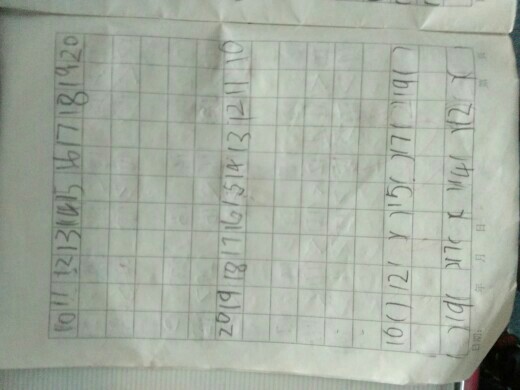 10 11 12 13 14 15 16 17 18 19 20
20 19 18 17 16 15 14 13 12 11 10
10 ( ) 12 ( ) ( ) 15 ( ) 17 ( ) 19 ( )
( ) 19 ( ) 17 ( ) ( ) 14 ( ) 12 ( ) ( )
年 月 日